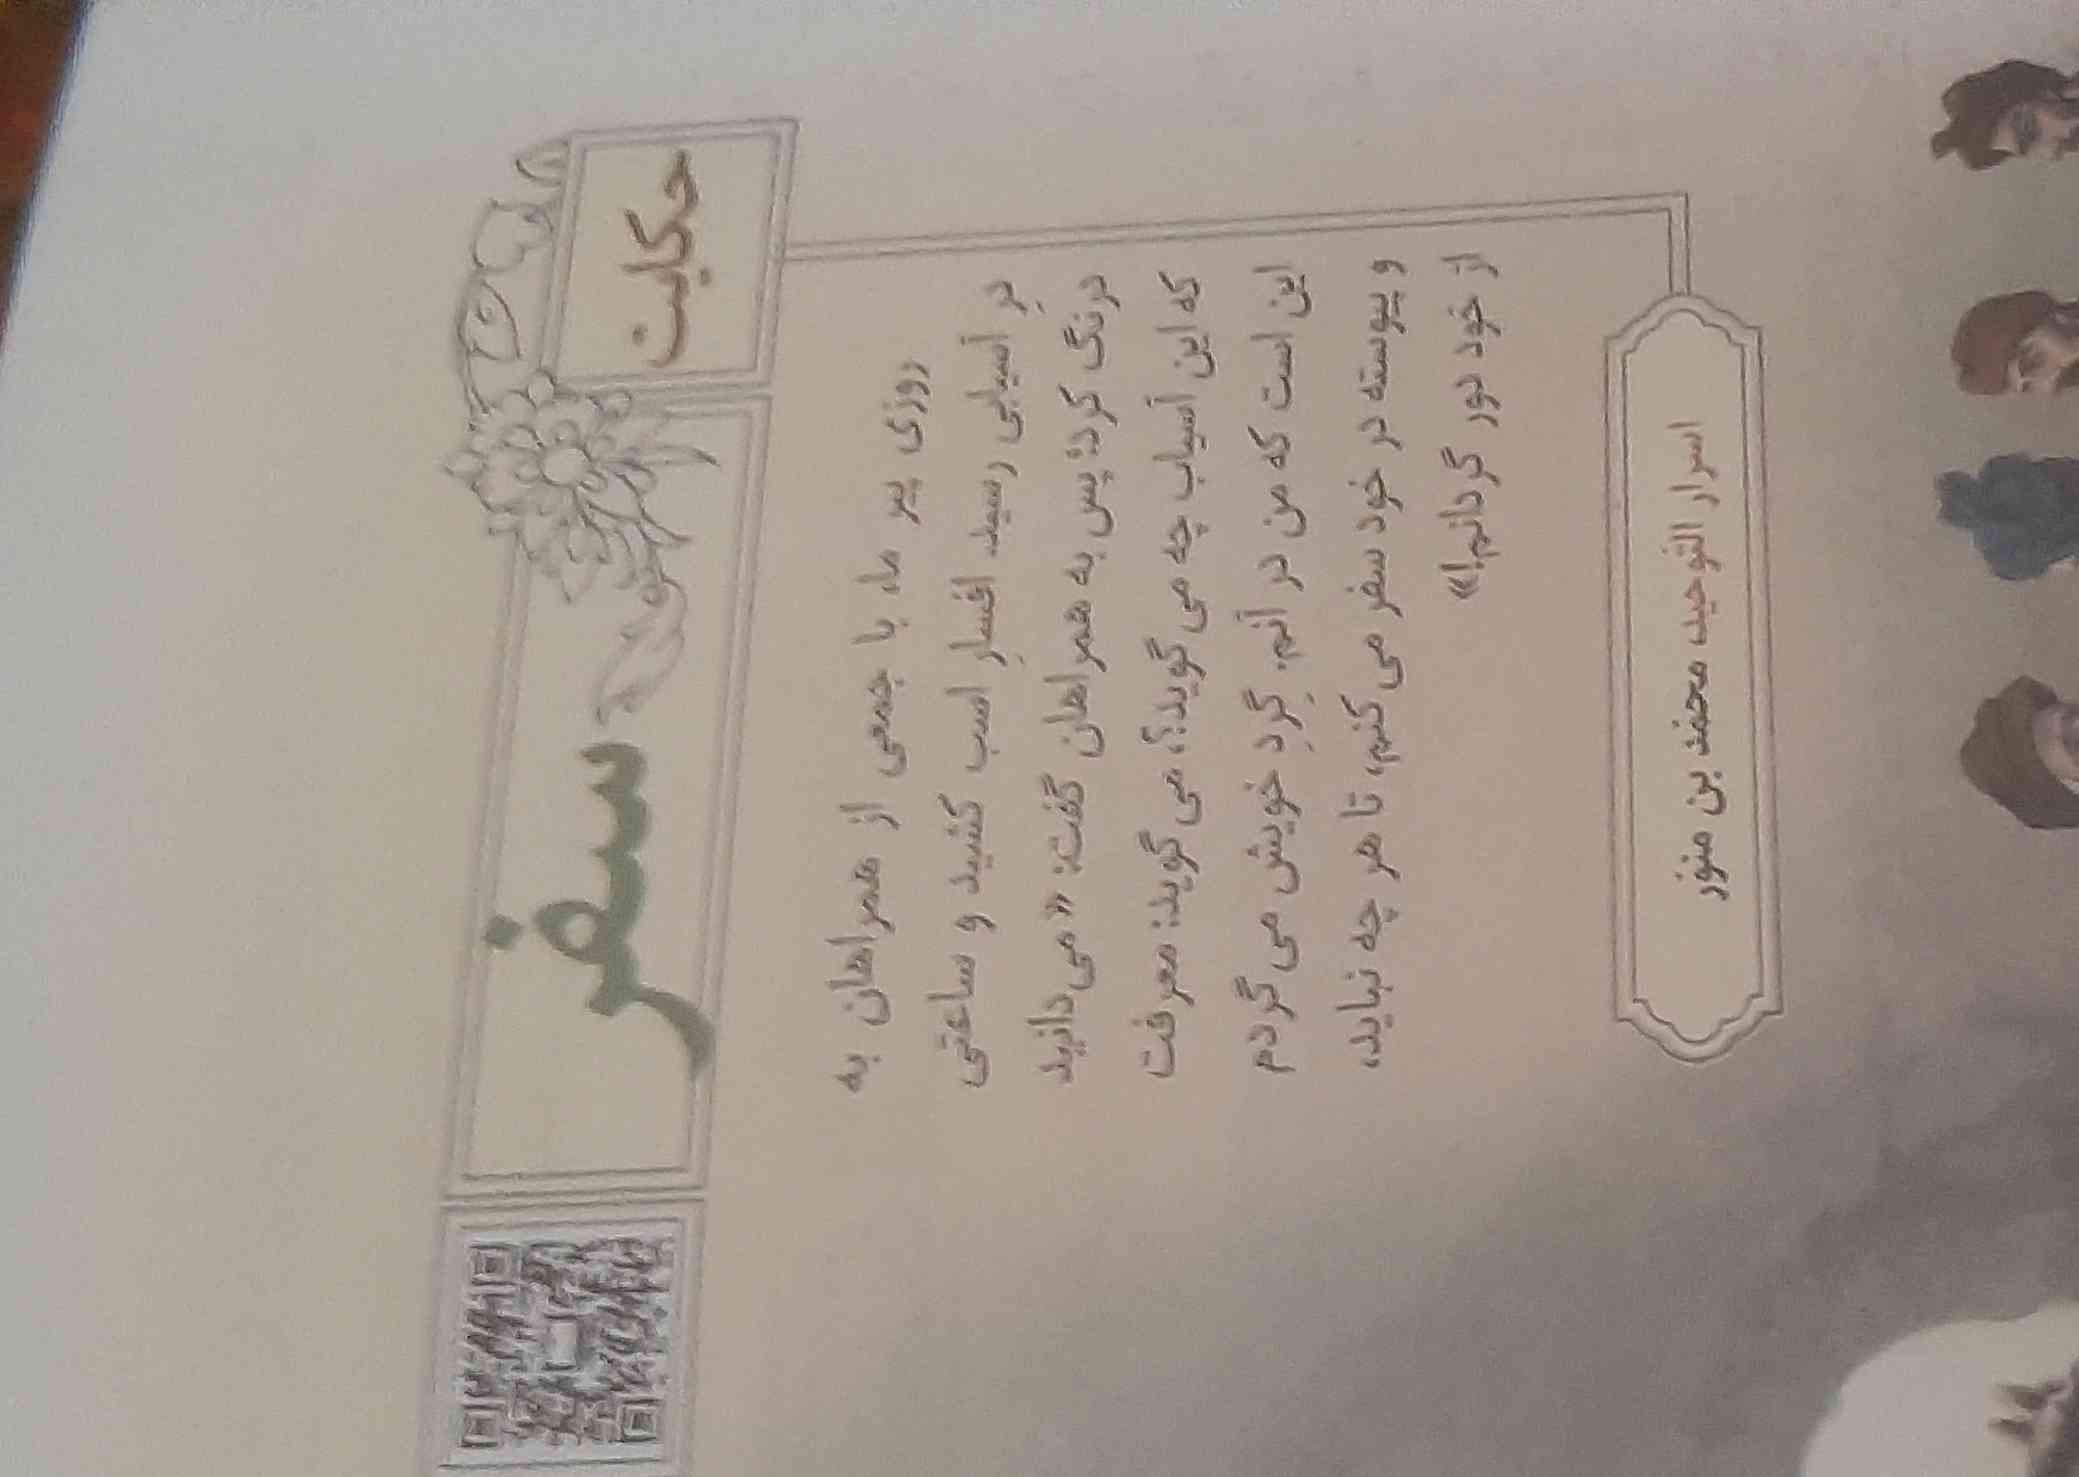 حکایت
سفر
روزی پیر ما، با جمعی از همراهان به
درِ آسیایی رسید. افسارِ اسب کشید و ساعتی
درنگ کرد؛ پس به همراهان گفت: «می‌دانید
که این آسیاب چه می‌گوید؟، می‌گوید: معرفت
این است که من در آنم. گِردِ خویش می‌گردم
و پیوسته در خود سفر می‌کنم، تا هر چه نباید،
از خود دور گردانم!»
اسرار التوحید، محمد بن منوّر